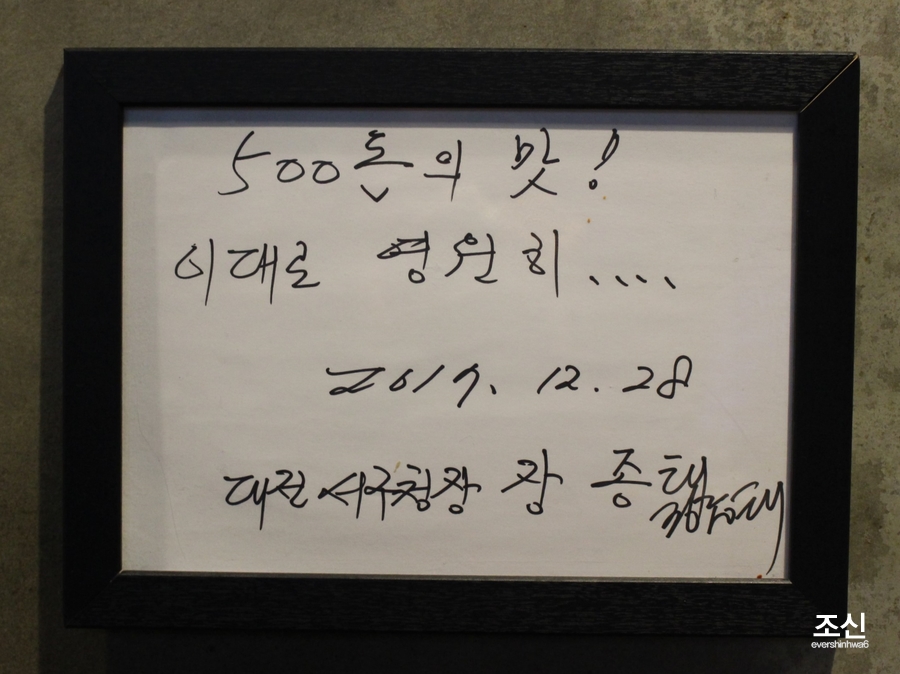 500돈의 맛!
이대로 영원히....
2017. 12. 28
대전 서구청장 장 종태
조신
evershinhwa6